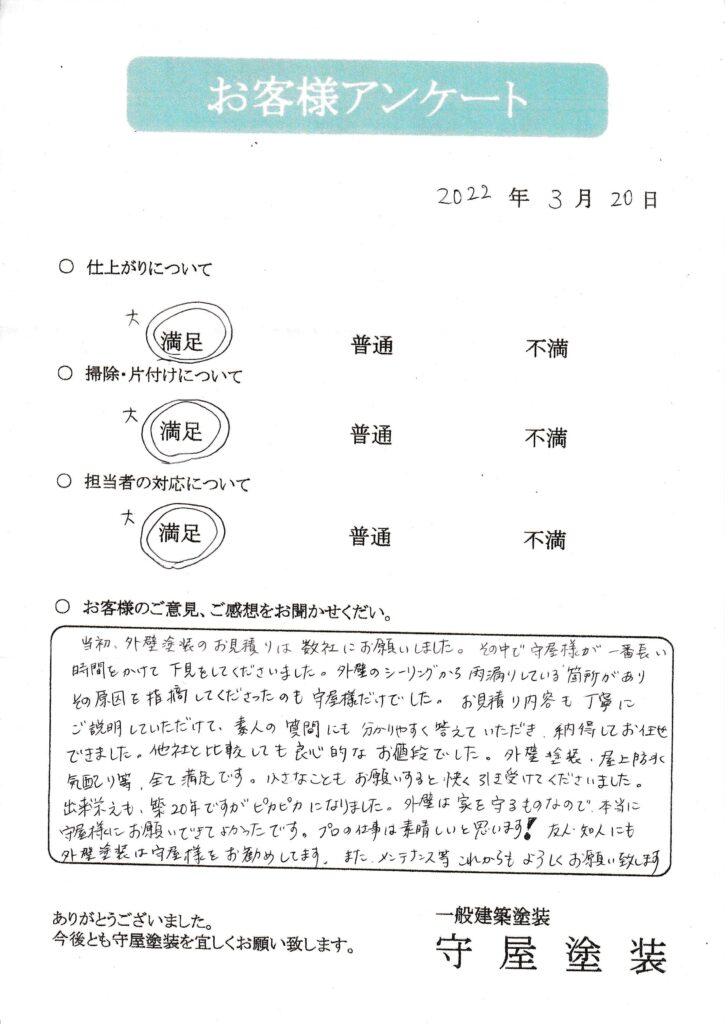 お客様アンケート
2022 年 3 月 20 日
○ 仕上がりについて
大 満足 普通 不満
○ 掃除・片付けについて
大 満足 普通 不満
○ 担当者の対応について
大 満足 普通 不満
○ お客様のご意見、ご感想をお聞かせくだい。
当初、外壁塗装のお見積りは数社にお願いしました。その中で守屋様が一番長い
時間をかけて下見をしてくださいました。外壁のシーリングから雨漏りしている箇所があり
その原因を指摘してくださったのも守屋様だけでした。お見積り内容も丁寧に
ご説明していただけて、素人の質問にも分かりやすく答えていただき、納得してお任せ
できました。他社と比較しても良心的なお値段でした。外壁塗装、屋上防水
気配り等、全て満足です。小さなこともお願いすると快く引き受けてくださいました。
出来栄えも、築20年ですがピカピカになりました。外壁は家を守るものなので、本当に
守屋様にお願いできてよかったです。プロの仕事は素晴しいと思います! 友人・知人にも
外壁塗装は守屋様をお勧めしてます。また、メンテナンス等これからもよろしくお願い致します
ありがとうございました。
今後とも守屋塗装を宜しくお願い致します。
一般建築塗装
守屋塗装